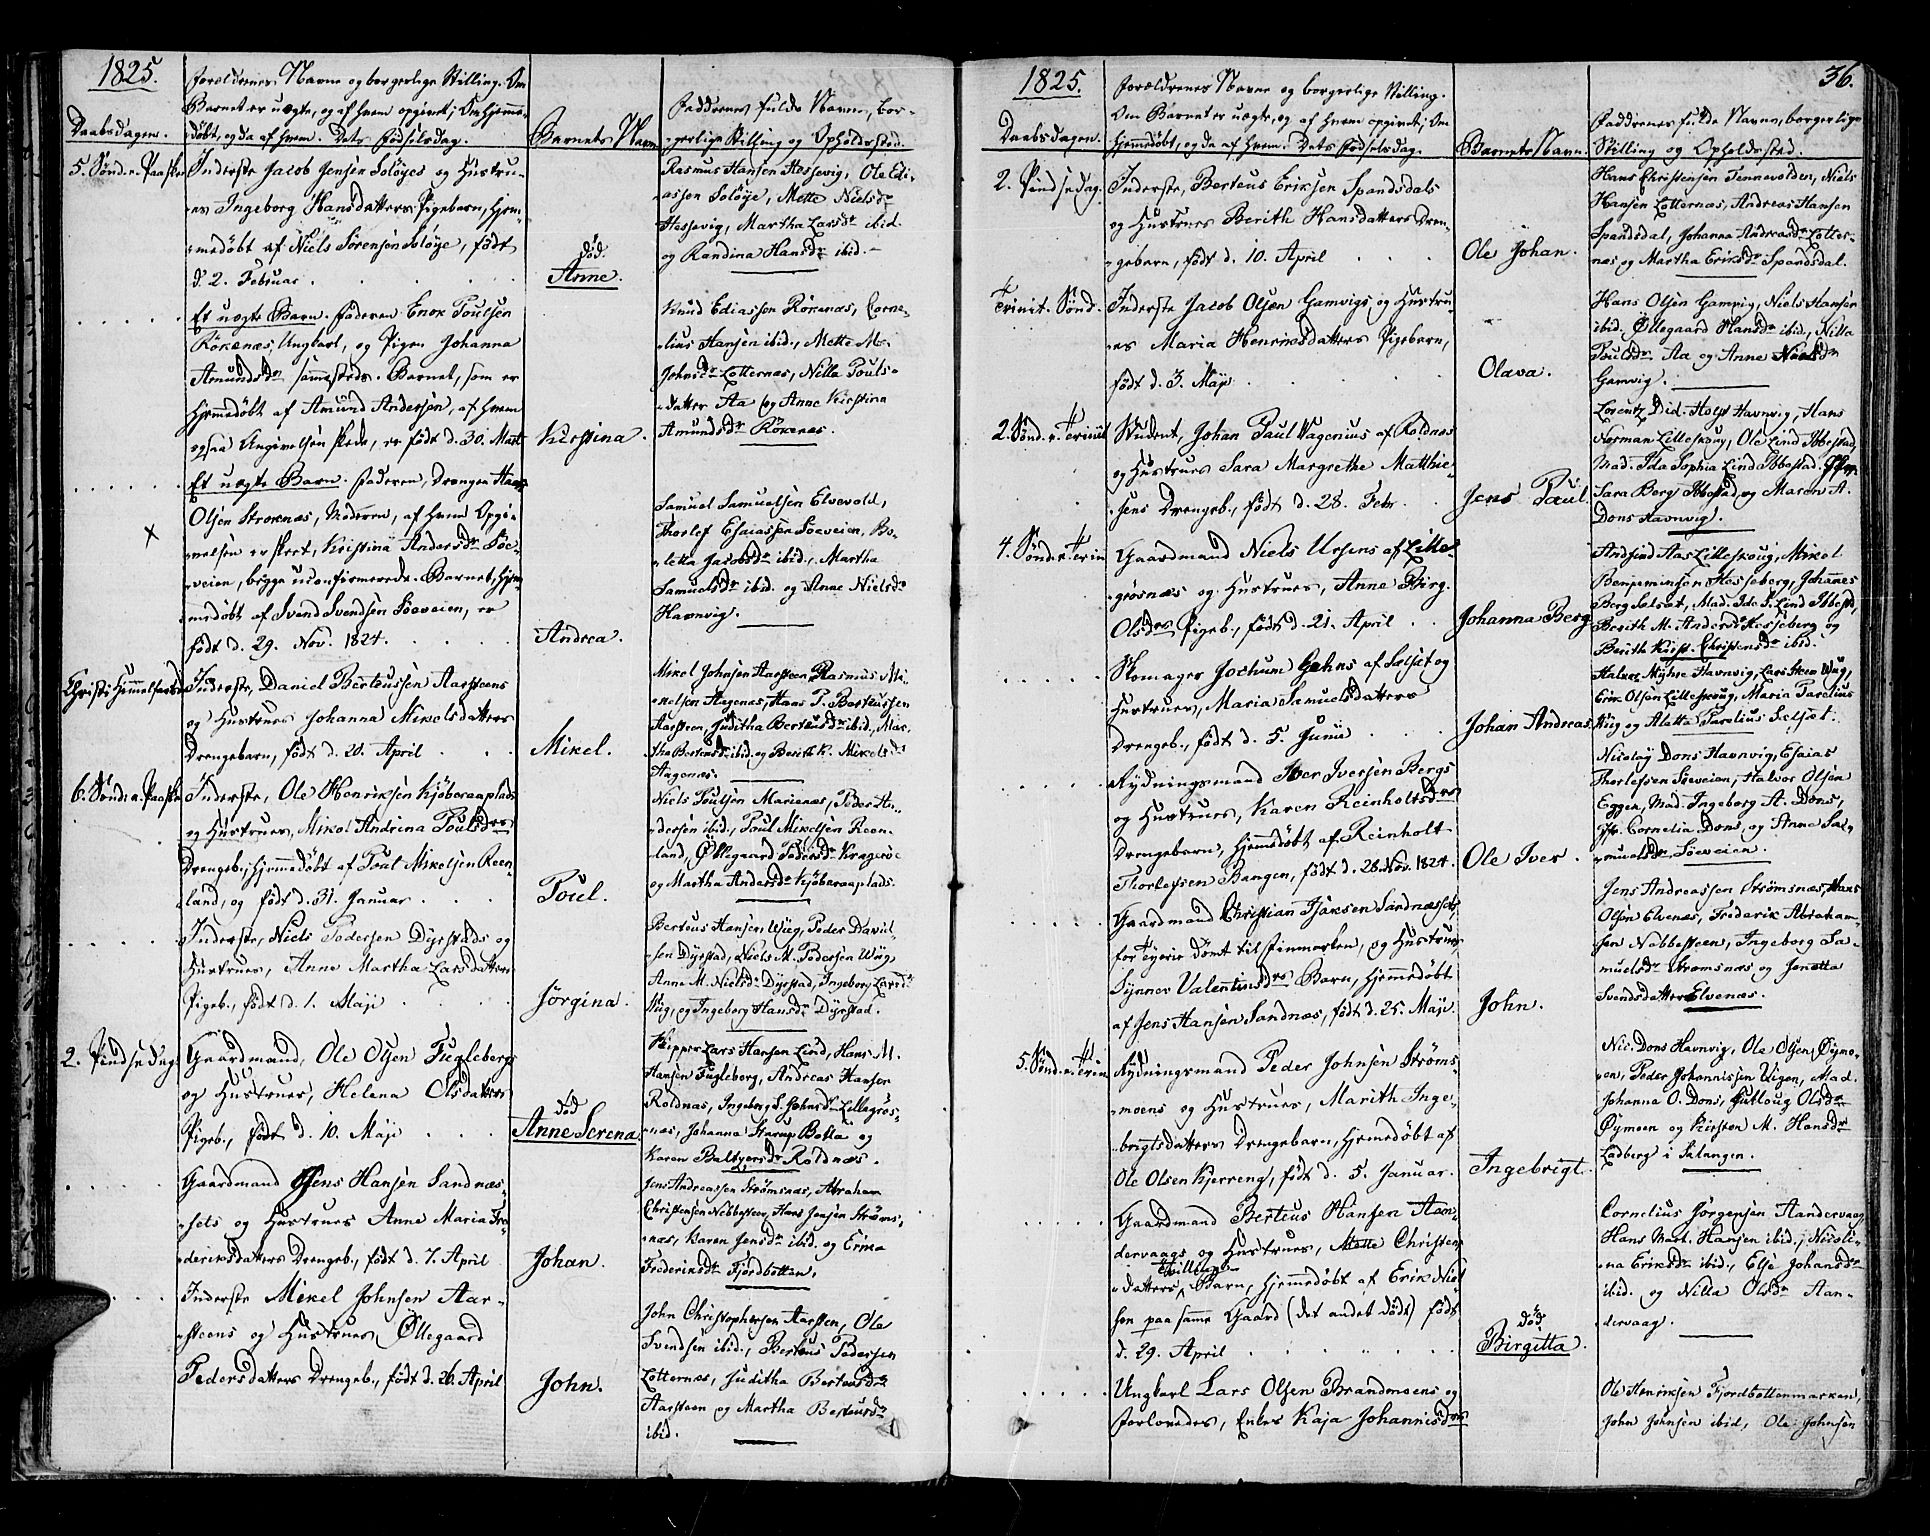 1825.
Forældrenes Navne og borgerlige Stilling. Om
Barnet er uægte, og af hvem opgivet; Om hjemme-
døbt, og da af hvem. Dets Fødselsdag.
Daabsdagen.
Barnets Navn
Faddrenes fulde Navne, bor-
gerlige Stilling og Opholdssted.
5. Sønd. e. Paaske
Inderste Jacob Jensen Soløyes og Hustru-
es Ingeborg Hansdatters Pigebarn, hjem-
medøbt af Niels Sørensen Soløye, født
d. 2. Februar
død.
Anne.
Rasmus Hansen Hessevig, Ole Edi-
assen Soløye, Mette Nielsdr
Hessevig, Martha Larsdr ibid.
og Randina Hansdr ibid.
Et uægte Barn. Faderen Enok Poulsen
Rökenæs, Ungkarl, og Pigen Johanna
Amundsdr sammesteds. Barnet, som er
hjemmedøbt af Amund Andersen, af hvem
ogsaa Angivelsen skede, er født d. 30. Mart
Kirstina.
Knud Ediassen Rökenæs, Corne-
lius Hansen ibid., Mette M.
Johnsdr Lotternæs, Nilla Pouls-
datter Aa og Anne Kirstina
Amundsdr Rökenæs.
Et uægte Barn. Faderen, Drengen Hans
Olsen Straknæs, Moderen, af hvem Opgi-
velsen er skeet, Kristina Andersdr Söe-
veien, begge uconfirmerede. Barnet, hjem-
medøbt af Svend Svendsen Söeveien, er
født d. 29. Nov. 1824.
Andrea.
Samuel Samuelsen Elvevold,
Thorlef Esaiassen Söeveien, Bo-
letta Jacobsdr ibid., Martha
Samuelsdr ibid. og Anne Nielsdr
Havnvig.
Christi Himmelfartsd.
Inderste, Daniel Berteussen Aarsteens
og Hustrues Johanna Mikelsdatters
Drengebarn, født d. 20. April
Mikel.
Mikel Johnsen Aarsteen, Rasmus Mi-
kelsen Aagenæs, Hans P. Berteussen
Aarsteen, Juditha Berteusdr ibid., Mar-
tha Berteusdr ibid. og Berith K. Mikelsdr
Aagenæs.
6. Sønd. e. Paaske
Inderste, Ole Henriksen Kjöberaaplads
og Hustrues, Mikel Andrina Poulsdrs
Drengeb., hjemmedøbt af Poul Mikelsen Reen-
land, og født d. 31. Januar
Poul.
Niels Poulsen Marienæs, Peder An-
dersen ibid., Paul Mikelsen Reen-
land, Øllegaard Pedersdr Krageröe
og Martha Andersdr Kjöberaaplads.
Inderste, Niels Pedersen Dyrstads og
Hustrues, Anne Martha Larsdatters
Pigeb., født d. 1. Maji
Jörgina.
Berteus Hansen Wiig, Peder David-
sen Dyrstad, Niels M. Pedersen Wiig,
Anne M. Nielsdr Dyrstad, Ingeborg Larsdr
Wiig, og Ingeborg Hansdr Dyrstad.
2. Pindsedag.
Gaardmand, Ole Olsen Fuglebergs
og Hustrues, Helena Olsdatters
Pigeb., født d. 10. Maji
død
Anne Serena.
Skipper Lars Hansen Lind, Hans M.
Hansen Fugleborg, Andreas Hansen
Roldnæs, Ingeborg S. Johnsdr Lillegrös-
næs, Johanna Starup Bolla og
Karen Baltzersdr Roldnæs.
Gaardmand Jens Hansen Sandnæs-
sets og Hustrues Anne Maria Fre-
deriksdatters Drengeb., født d. 7. April
Johan.
Jens Andreassen Strömsnæs, Abraham
Christensen Nobbesteen, Hans Jensen Ströms-
næs, Karen Jensdr ibid. og Erika
Frederiksdr Fjordbotten.
Inderste Mikel Johnsen Aar-
steens og Hustrues Øllegaard
Pedersdatters Drengeb., født d. 26. April
John.
John Christophersen Aarsteen, Ole
Svendsen ibid., Berteus Pedersen
Lotternæs, Juditha Berteusdr
Aarsteen og Martha Berteusdr
ibid.
1825.
36.
Forældrenes Navne og borgerlige Stilling.
Om Barnet er uægte, og af hvem opgivet; Om
hjemmedøbt, og da af hvem. Dets Fødselsdag.
Daabsdagen.
Barnets Navn.
Faddrenes fulde Navne, borgerlige
Stilling og Opholdssted.
2. Pindsedag.
Inderste, Berteus Eriksen Spandsdals
og Hustrues Berith Hansdatters Dren-
gebarn, født d. 10. April
Ole Johan.
Hans Christensen Tennevolden, Niels
Hansen Lotternæs, Andreas Hansen
Spandsdal, Johanna Andreasdr Lotter-
næs og Martha Eriksdr Spandsdal.
Trinit. Sønd.
Inderste Jacob Olsen Gamvigs og Hustru-
es Maria Henriksdatters Pigebarn,
født d. 3. Maji
Olava.
Hans Olsen Gamvig, Niels Hansen
ibid. Øllegaard Hansdr ibid., Nilla
Poulsdr Aa og Anne Nielsdr
Gamvig.
2. Sønd. e. Trinit
Student, Johan Paul Wagenius af Roldnæs
og Hustrues Sara Margrethe Matthie-
sens Drengeb., født d. 28. Febr.
Jens Paul.
Lorentz Did. Holst Havnvig, Hans
Norman Lilleskoug, Ole Lind Ibbestad,
Mad. Ida Sophia Lind Ibbestad, Jfr.
Sara Berg Ibbestad og Maren A.
Dons Havnvig.
4. Sønd. e. Trin
Gaardmand Niels Ursens af Lille-
grösnæs og Hustrues, Anne Birg.
Olsdrs Pigeb., født d. 21. April
Johanna Berg
Aas Lilleskoug, Mikel
Benjeminsen Hesseberg, Johannes
Berg Sælsæt, Mad. Ida S. Lind Ibbestad,
Berith M. Andersdr Hesseberg og
Berith Kirst. Christensdr ibid.
Skomager Jochum Gehns af Sælsæt og
Hustrues, Maria Samuelsdatters
Drengeb., født d. 5. Junii
Johan Andreas
Myhre Havnvig, Lars Steen Wiig,
Erik Olsen Lilleskoug, Maria Parelius
Wiig og Aletta Parelius Sælsæt.
Rydningsmand Iver Iversen Bergs
og Hustrues, Karen Reinholtsdrs
Drengebarn, hjemmedøbt af Reinholt
Thorlefsen Bangen, født d. 28. Nov. 1824.
Ole Iver.
Nicolay Dons Havnvig, Esaias
Thorlefsen Söeveien, Halvor Olsen
Eggen, Mad. Ingeborg A. Dons,
Jfr. Cornelia Dons, og Anne Sa-
muelsdr Söeveien.
Gaardmand Christian Isaksen Sandnæssets,
for Tyverie dömt til Finmarken, og Hustrues
Synnev Valentinsdrs Barn, hjemmedøbt
af Jens Hansen Sandnæs, født d. 25. Maji
John.
Jens Andreassen Strömsnæs, Hans
Olsen Elvenæs, Frederik Abraham-
sen Nobbesteen, Ingeborg Sa-
muelsdr Strömsnæs og Jenetta
Svendsdatter Elvenæs.
5. Sønd. e. Trin
Rydningsmand Peder Johnsen Ströms-
moens og Hustrues, Marith Inge-
brigtsdatters Drengebarn, hjemmedøbt af
Ole Olsen Kjerreng, født d. 5. Januar.
Ingebrigt.
Nic. Dons Havnvig, Ole Olsen Øymo-
en, Peder Johannissen Vigen, Mad.
Johanna O. Dons, Gulloug Olsdr
Øymoen og Kirsten M. Hansdr
Ladberg i Salangen.
Gaardmand Berteus Hansen Aan-
dervaags og Hustrues, Mette Christens-
datters, Tvilling Barn, hjemmedøbt af Erik Niel-
sen paa samme Gaard (det andet dødt) født
d. 29. April
død
Birgitta.
Cornelius Jörgensen Aandervaag,
Hans Mart. Hansen ibid., Nicoli-
na Eriksdr ibid., Else Johansdr
ibid. og Nilla Olsdr Aan-
dervaag.
Ungkarl Lars Olsen Brandmoens og
forlovedes, Enkes Kaja Johannisdrs
Ole Henriksen Fjordbottenmarken,
John Johnsen ibid, Ole Johnsen